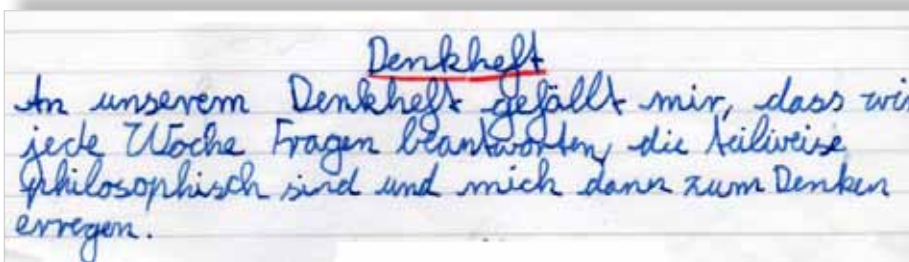 Denkheft
An unserem Denkheft gefällt mir, dass wir
jede Woche Fragen beantworten, die teilweise
philosophisch sind und mich dann zum Denken
erregen.